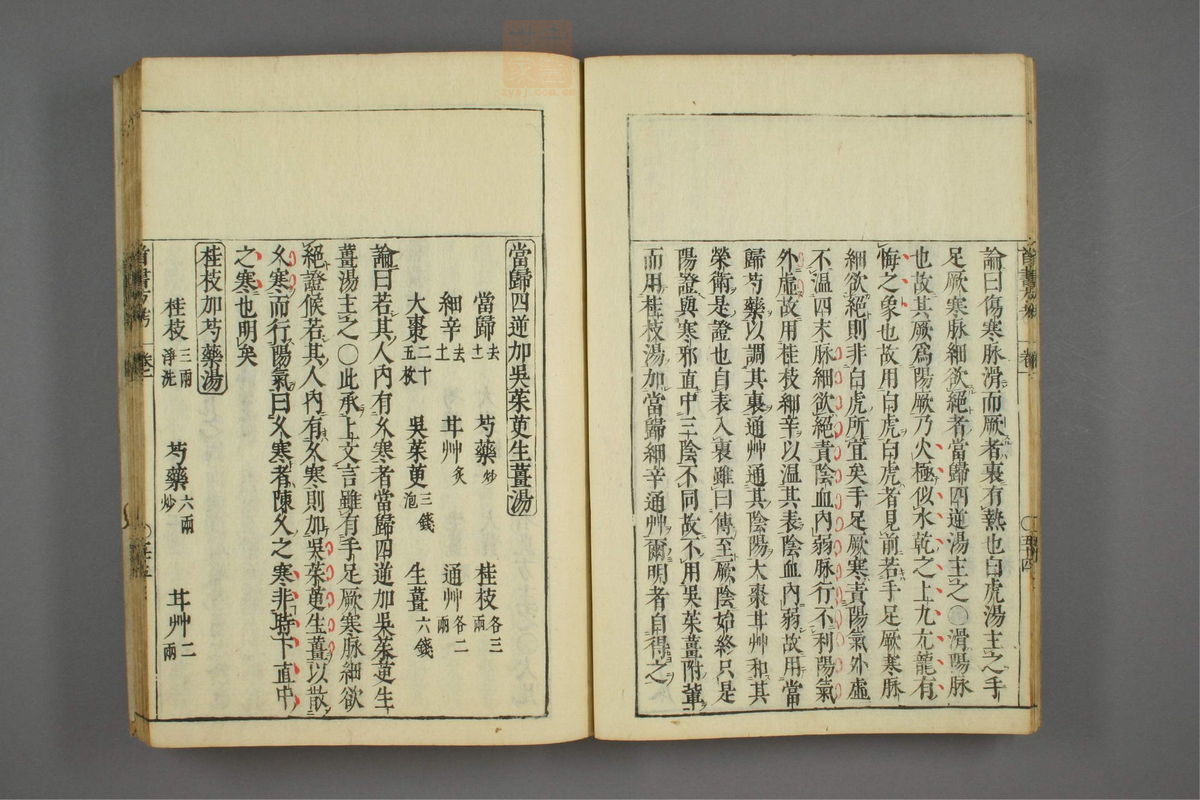 論曰傷寒脉滑而厥者裏有熱也白虎湯主之手
足厥寒脉細欲絕者當歸四逆湯主之滑陽脉
也故其厥爲陽厥乃火極似水乾之上九亢龍有
悔之象也故用白虎白虎者見前若手足厥寒脉
細欲絕則非白虎所宜矣手足厥寒責陽氣外虛
不溫四末脉細欲絕責陰血內弱脉行不利陽氣
外虛故用桂枝細辛以溫其表陰血內弱故用當
歸芍藥以調其裏通艸通其陰陽大棗甘艸和其
榮衛是證也自表入裏雖曰傳至厥陰始終只是
陽證與寒邪直中三陰不同故不用吳茱薑附輩
而用桂枝湯加當歸細辛通艸爾明者自得之
當歸四逆加吳茱萸生薑湯
當歸去土 芍藥炒 桂枝各三兩
細辛去土 甘艸炙 通艸各二兩
大棗二十五枚 吳茱萸三錢泡 生薑六錢
論曰若其人內有久寒者當歸四逆加吳茱萸生
薑湯主之〇此承上文言雖有手足厥寒脉細欲
絕證候若其人內有久寒則加吳茱萸生薑以散
久寒而行陽氣曰久寒者陳久之寒非時下直中
之寒也明矣
桂枝加芍藥湯
桂枝三兩淨洗 芍藥六兩炒 甘艸二兩